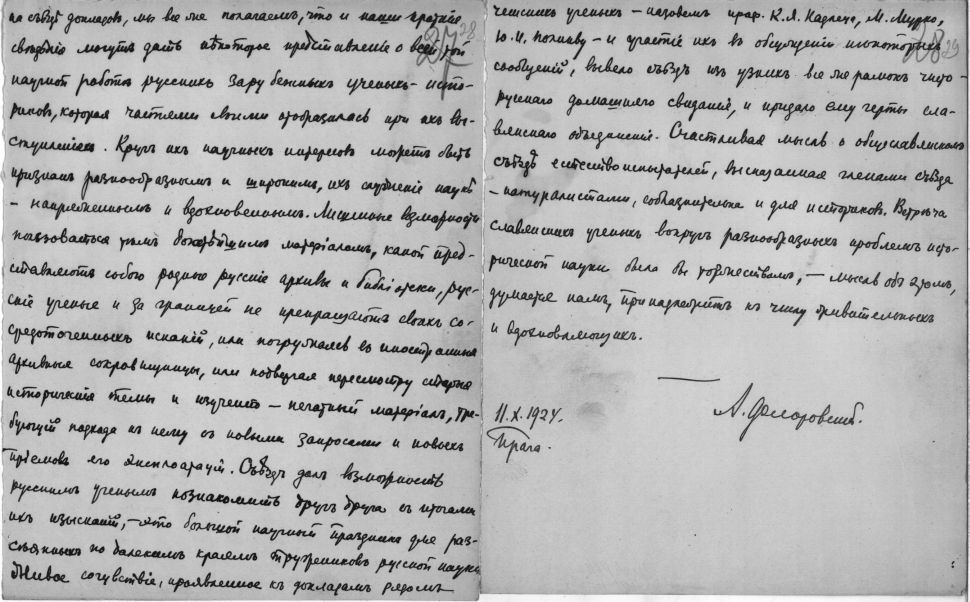 на съѣздѣ докладовъ, мы все же полагаемъ, что и наши краткія
свѣдѣнія могутъ дать нѣкоторое представленіе о всей той
научной работѣ русскихъ зарубежныхъ ученыхъ-исто-
риковъ, которая частями своими отобразилась при ихъ вы-
ступленіяхъ. Кругъ ихъ научныхъ интересовъ можетъ быть
признанъ разнообразнымъ и широкимъ, ихъ служеніе наукѣ
– напряженнымъ и вдохновеннымъ. Лишенные возможности
пользоваться тѣмъ богатѣйшимъ матеріаломъ, какой пред-
ставляютъ собою родные русскіе архивы и библіотеки, рус-
скіе ученые и за границей не прекращаютъ своихъ со-
средоточенныхъ исканій, или погружаясь въ иностранныя
архивныя сокровищницы, или подвергая пересмотру старыя
историческія темы и изученный – печатный матеріалъ, тре-
бующій подхода къ нему съ новыми запросами и новыхъ
пріемовъ его эксплоатаціи. Съѣздъ далъ возможность
русскимъ ученымъ познакомить другъ друга съ итогами
ихъ изысканій, – это большой научный праздникъ для раз-
сѣянныхъ по далекимъ краямъ тружениковъ русской науки.
Живое сочувствіе, проявленное къ докладамъ рядомъ
27
28
чешскихъ ученыхъ – назовемъ проф. К.Я. Кадлеца, М. Мурко,
Ю.И. Поливку – и участіе ихъ въ обсужденіи нѣкоторыхъ
сообщеній, вывело съѣздъ изъ узкихъ все же рамокъ чисто-
русскаго домашняго свиданія, и придало ему черты сла-
вянскаго объединенія. Счастливая мысль о общеславянскомъ
съѣздѣ естествоиспытателей, высказанная членами съѣзда
– натуралистами, соблазнительна и для историковъ. Встрѣча
славянскихъ ученыхъ вокругъ разнообразныхъ проблемъ исто-
рической науки была бы торжествомъ, – мысль объ этомъ,
думается намъ, принадлежитъ къ числу живительныхъ
и вдохновляющихъ.
28
29
А. Флоровскій.
11.X.1924.
Прага.